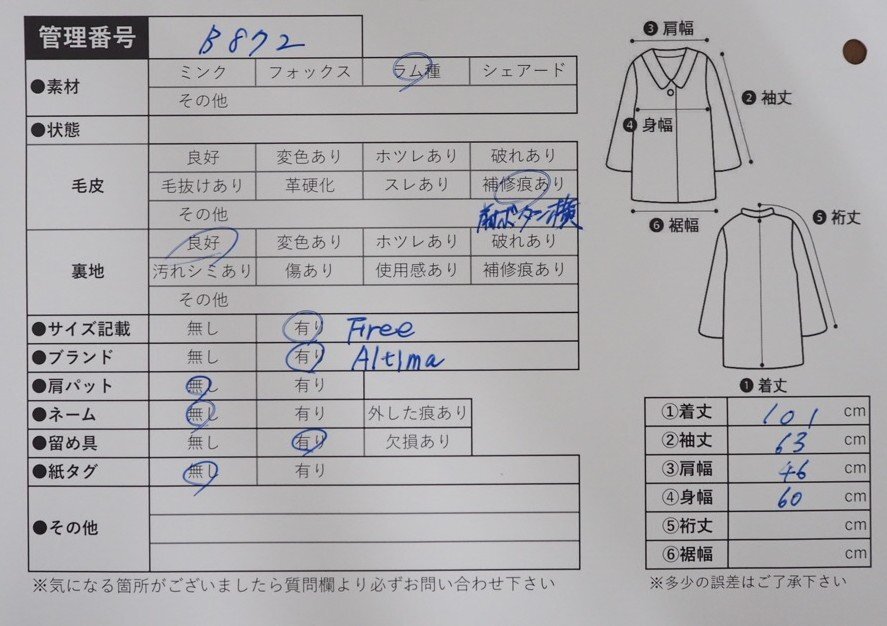 管理番号 B872
●素材 ミンク フォックス ラム種 シェアード
その他
●状態
毛皮 良好 変色あり ホツレあり 破れあり
毛抜けあり 革硬化 スレあり 補修痕あり
その他 ボタン横
裏地 良好 変色あり ホツレあり 破れあり
汚れシミあり 傷あり 使用感あり 補修痕あり
その他
●サイズ記載 無し 有り Free
●ブランド 無し 有り Altima
●肩パット 無し 有り
●ネーム 無し 有り 外した痕あり
●留め具 無し 有り 欠損あり
●紙タグ 無し 有り
●その他
※気になる箇所がございましたら質問欄より必ずお問い合わせ下さい
❸肩幅
❷袖丈
❹身幅
❻裾幅
❺裄丈
❶着丈
①着丈 101 cm
②袖丈 63 cm
③肩幅 46 cm
④身幅 60 cm
⑤裄丈 cm
⑥裾幅 cm
※多少の誤差はご了承下さい